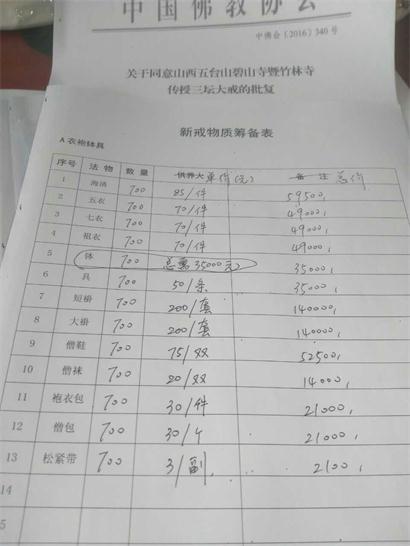 中国佛教协会
中佛会〔2016〕340号
关于同意山西五台山碧山寺暨竹林寺
传授三坛大戒的批复
新戒物质筹备表
A 衣袍钵具
序号 法物 数量 供养人 单价(元) 备注 总价
1 海清 700 85/件 59500,
2 五衣 700 70/件 49000,
3 七衣 700 70/件 49000,
4 祖衣 700 70/件 49000,
5 钵 700 总需35000元 35000,
6 具 700 50/条 35000,
7 短褂 700 200/套 140000,
8 大褂 700 200/套 140000,
9 僧鞋 700 75/双 52500,
10 僧袜 700 20/双 14000,
11 袍衣包 700 30/件 21000,
12 僧包 700 30/个 21000,
13 松紧带 700 3/副 2100,
14
5